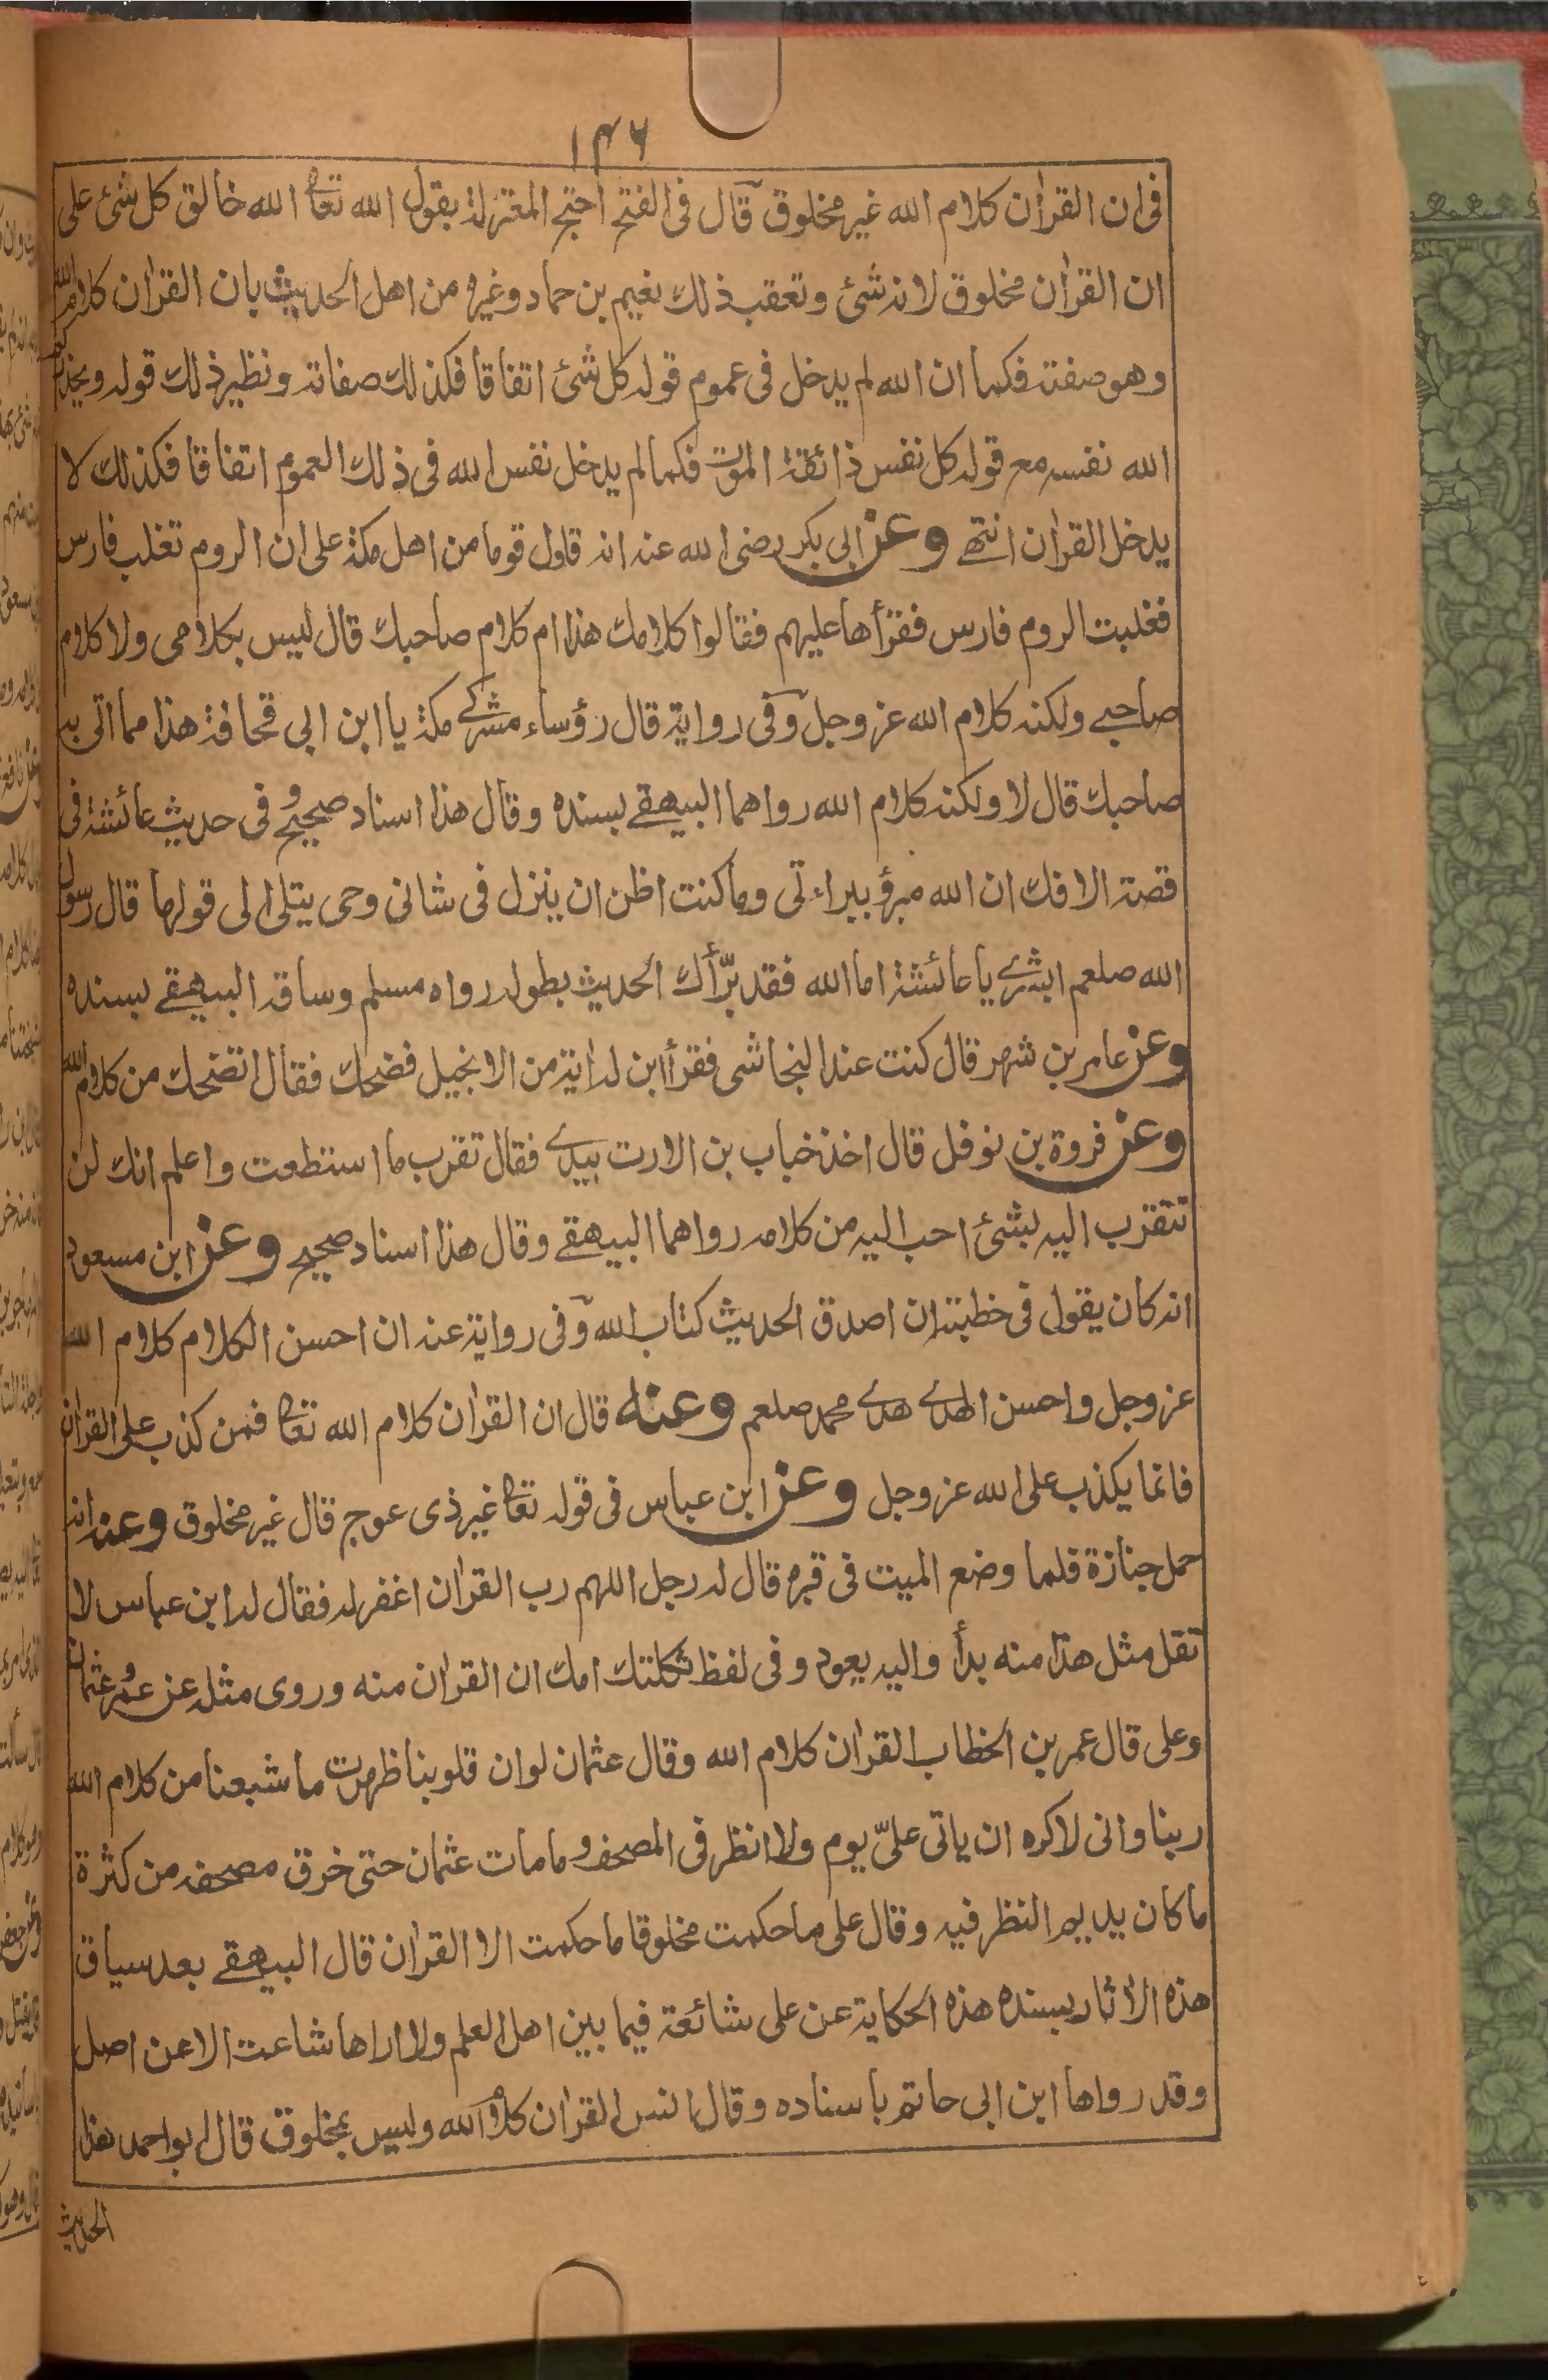 ١٣٦
فى ان القرأن كلام الله غير مخلوق قال فى الفتح احتج المعتزلة بقول الله تعا الله خالق كل شئ على
ان القرأن مخلوق لانه شئ وتعقب ذلك نعيم بن حماد وغيره من اهل الحديث بان القرأن كلام الله
وهو صفته فكما ان الله لم يدخل فى عموم قوله كل شئ اتفاقا فكذلك صفاته ونظير ذلك قوله ويحذركم
الله نفسه مع قوله كل نفس ذائقة الموت فكما لم يدخل نفس الله فى ذلك العموم اتفاقا فكذلك لا
يدخل القرأن انتهے وعن ابى بكر رضى الله عنه انه قاول قوما من اهل مكة على ان الروم تغلب فارس
فغلبت الروم فارس فقرأها عليهم فقالوا كلامك هذا ام كلام صاحبك قال ليس بكلامى ولا كلام
صاحبے ولكنه كلام الله عز وجل وفى رواية قال رؤساء مشركے مكة يا ابن ابى قحافة هذا مما اتى به
صاحبك قال لا ولكنه كلام الله رواهما البيهقے بسنده وقال هذا اسناد صحيح وفى حديث عائشة فى
قصة الافك ان الله مبرؤ ببراءتى وما كنت اظن ان ينزل فى شانى وحى يتلى الى قولها قال رسول
الله صلعم ابشرے يا عائشة اما الله فقد برّأك الحديث بطوله رواه مسلم وساقه البيهقے بسنده
وعن عامر بن شهر قال كنت عند النجاشى فقرأ ابن له أية من الانجيل فضحك فقال اتضحك من كلام الله
وعن فروة بن نوفل قال اخذ خباب بن الارت بيدے فقال تقرب ما استطعت واعلم انك لن
تتقرب اليه بشئ احب اليه من كلامه رواهما البيهقے وقال هذا اسناد صحيح وعن ابن مسعود
انه كان يقول فى خطبته ان اصدق الحديث كتاب الله وفى رواية عنه ان احسن الكلام كلام الله
عز وجل واحسن الهدے هدے محمد صلعم وعنه قال ان القرأن كلام الله تعا فمن كذب على القرأن
فانما يكذب على الله عز وجل وعن ابن عباس فى قوله تعا غير ذى عوج قال غير مخلوق وعنه انه
حمل جنازة فلما وضع الميت فى قبره قال له رجل اللهم رب القرأن اغفر له فقال له ابن عباس لا
تقل مثل هذا منه بدأ واليه يعود وفى لفظ ثكلتك امك ان القرأن منه وروى مثله عن عمر وعثمان
وعلى قال عمر بن الخطاب القرأن كلام الله وقال عثمان لو ان قلوبنا ظهرت ما شبعنا من كلام الله
ربنا وانى لاكره ان ياتى علىّ يوم ولا انظر فى المصحف وما مات عثمان حتى خرق مصحفه من كثرة
ما كان يديم النظر فيه وقال على ما حكمت مخلوقا ما حكمت الا القرأن قال البيهقے بعد سياق
هذه الأثار بسنده هذه الحكاية عن على شائعة فيما بين اهل العلم ولا اراها شاعت الا عن اصل
وقد رواها ابن ابى حاتم باسناده وقال انس القرأن كلام الله وليس بمخلوق قال ابو احمد هذا
الحديث